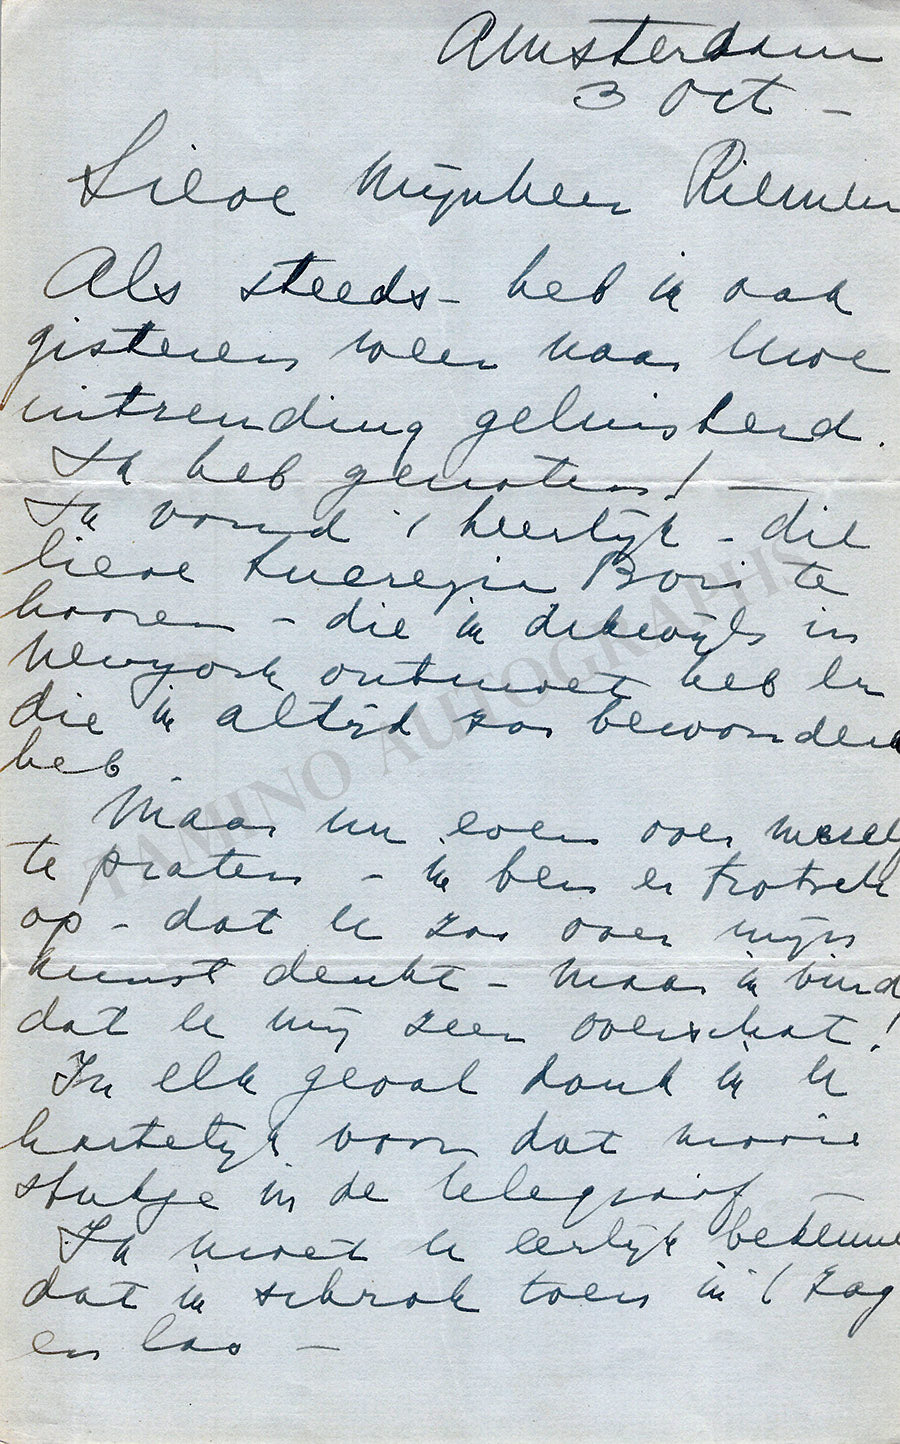 Amsterdam
3 Oct -
Lieve Mijnheer Riemens
Als steeds - heb ik ook
gisteren weer naar Uwe
uitzending geluisterd.
Ik heb genoten! -
Ik vond 't heerlijk - die
lieve Lucrezia Bori te
hooren - die ik dikwijls in
Newyork ontmoet heb en
die ik altijd zoo bewonderd
heb
Maar nu even over mezelf
te praten - ik ben er trotsch
op - dat U zoo over mijn
kunst denkt - Maar ik vind
dat U mij zeer overschat!
In elk geval dank ik U
hartelijk voor dat mooie
stukje in de telegraaf
Ik moet U eerlijk bekennen
dat ik schrok toen ik 't zag
en las -
TAMINO AUTOGRAPHS